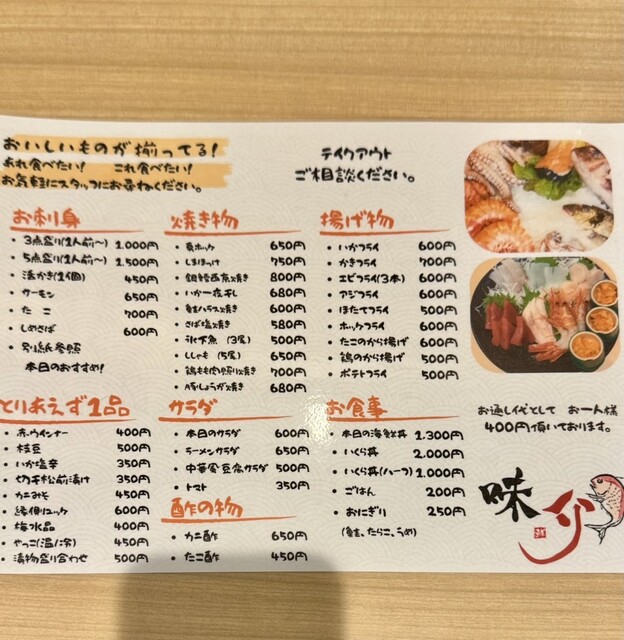 おいしいものが揃ってる!
あれ食べたい! これ食べたい!
お気軽にスタッフにお尋ねください。
テイクアウト
ご相談ください。
お刺身
・3点盛り(1人前〜) 1.000円
・5点盛り(1人前〜) 1.500円
・活かき(1個) 450円
・サーモン 650円
・たこ 700円
・しめさば 600円
・別紙参照
本日のおすすめ!
焼き物
・真ホッケ 650円
・しまほっけ 750円
・銀鱈西京焼き 800円
・いか一夜干し 680円
・鮭ハラス焼き 600円
・さば塩焼き 580円
・氷下魚 (3尾) 500円
・ししゃも (5尾) 650円
・鶏もも肉照り焼き 700円
・豚しょうが焼き 680円
揚げ物
・いかフライ 600円
・かきフライ 700円
・エビフライ(3本) 600円
・アジフライ 500円
・ほたてフライ 500円
・ホッケフライ 600円
・たこのから揚げ 600円
・鶏のから揚げ 500円
・ポテトフライ 500円
とりあえず1品
・赤ウインナー 400円
・枝豆 500円
・いか塩辛 350円
・切干松前漬け 350円
・カニみそ 450円
・縁側ユッケ 600円
・梅水晶 400円
・やっこ(温/冷) 450円
・漬物盛り合わせ 500円
サラダ
・本日のサラダ 600円
・ラーメンサラダ 650円
・中華風豆腐サラダ 500円
・トマト 350円
酢の物
・カニ酢 650円
・たこ酢 450円
お食事
・本日の海鮮丼 1.300円
・いくら丼 2.000円
・いくら丼(ハーフ) 1.000円
・ごはん 200円
・おにぎり 250円
(鮭、たらこ、うめ)
お通し代として お一人様
400円頂いております。
味